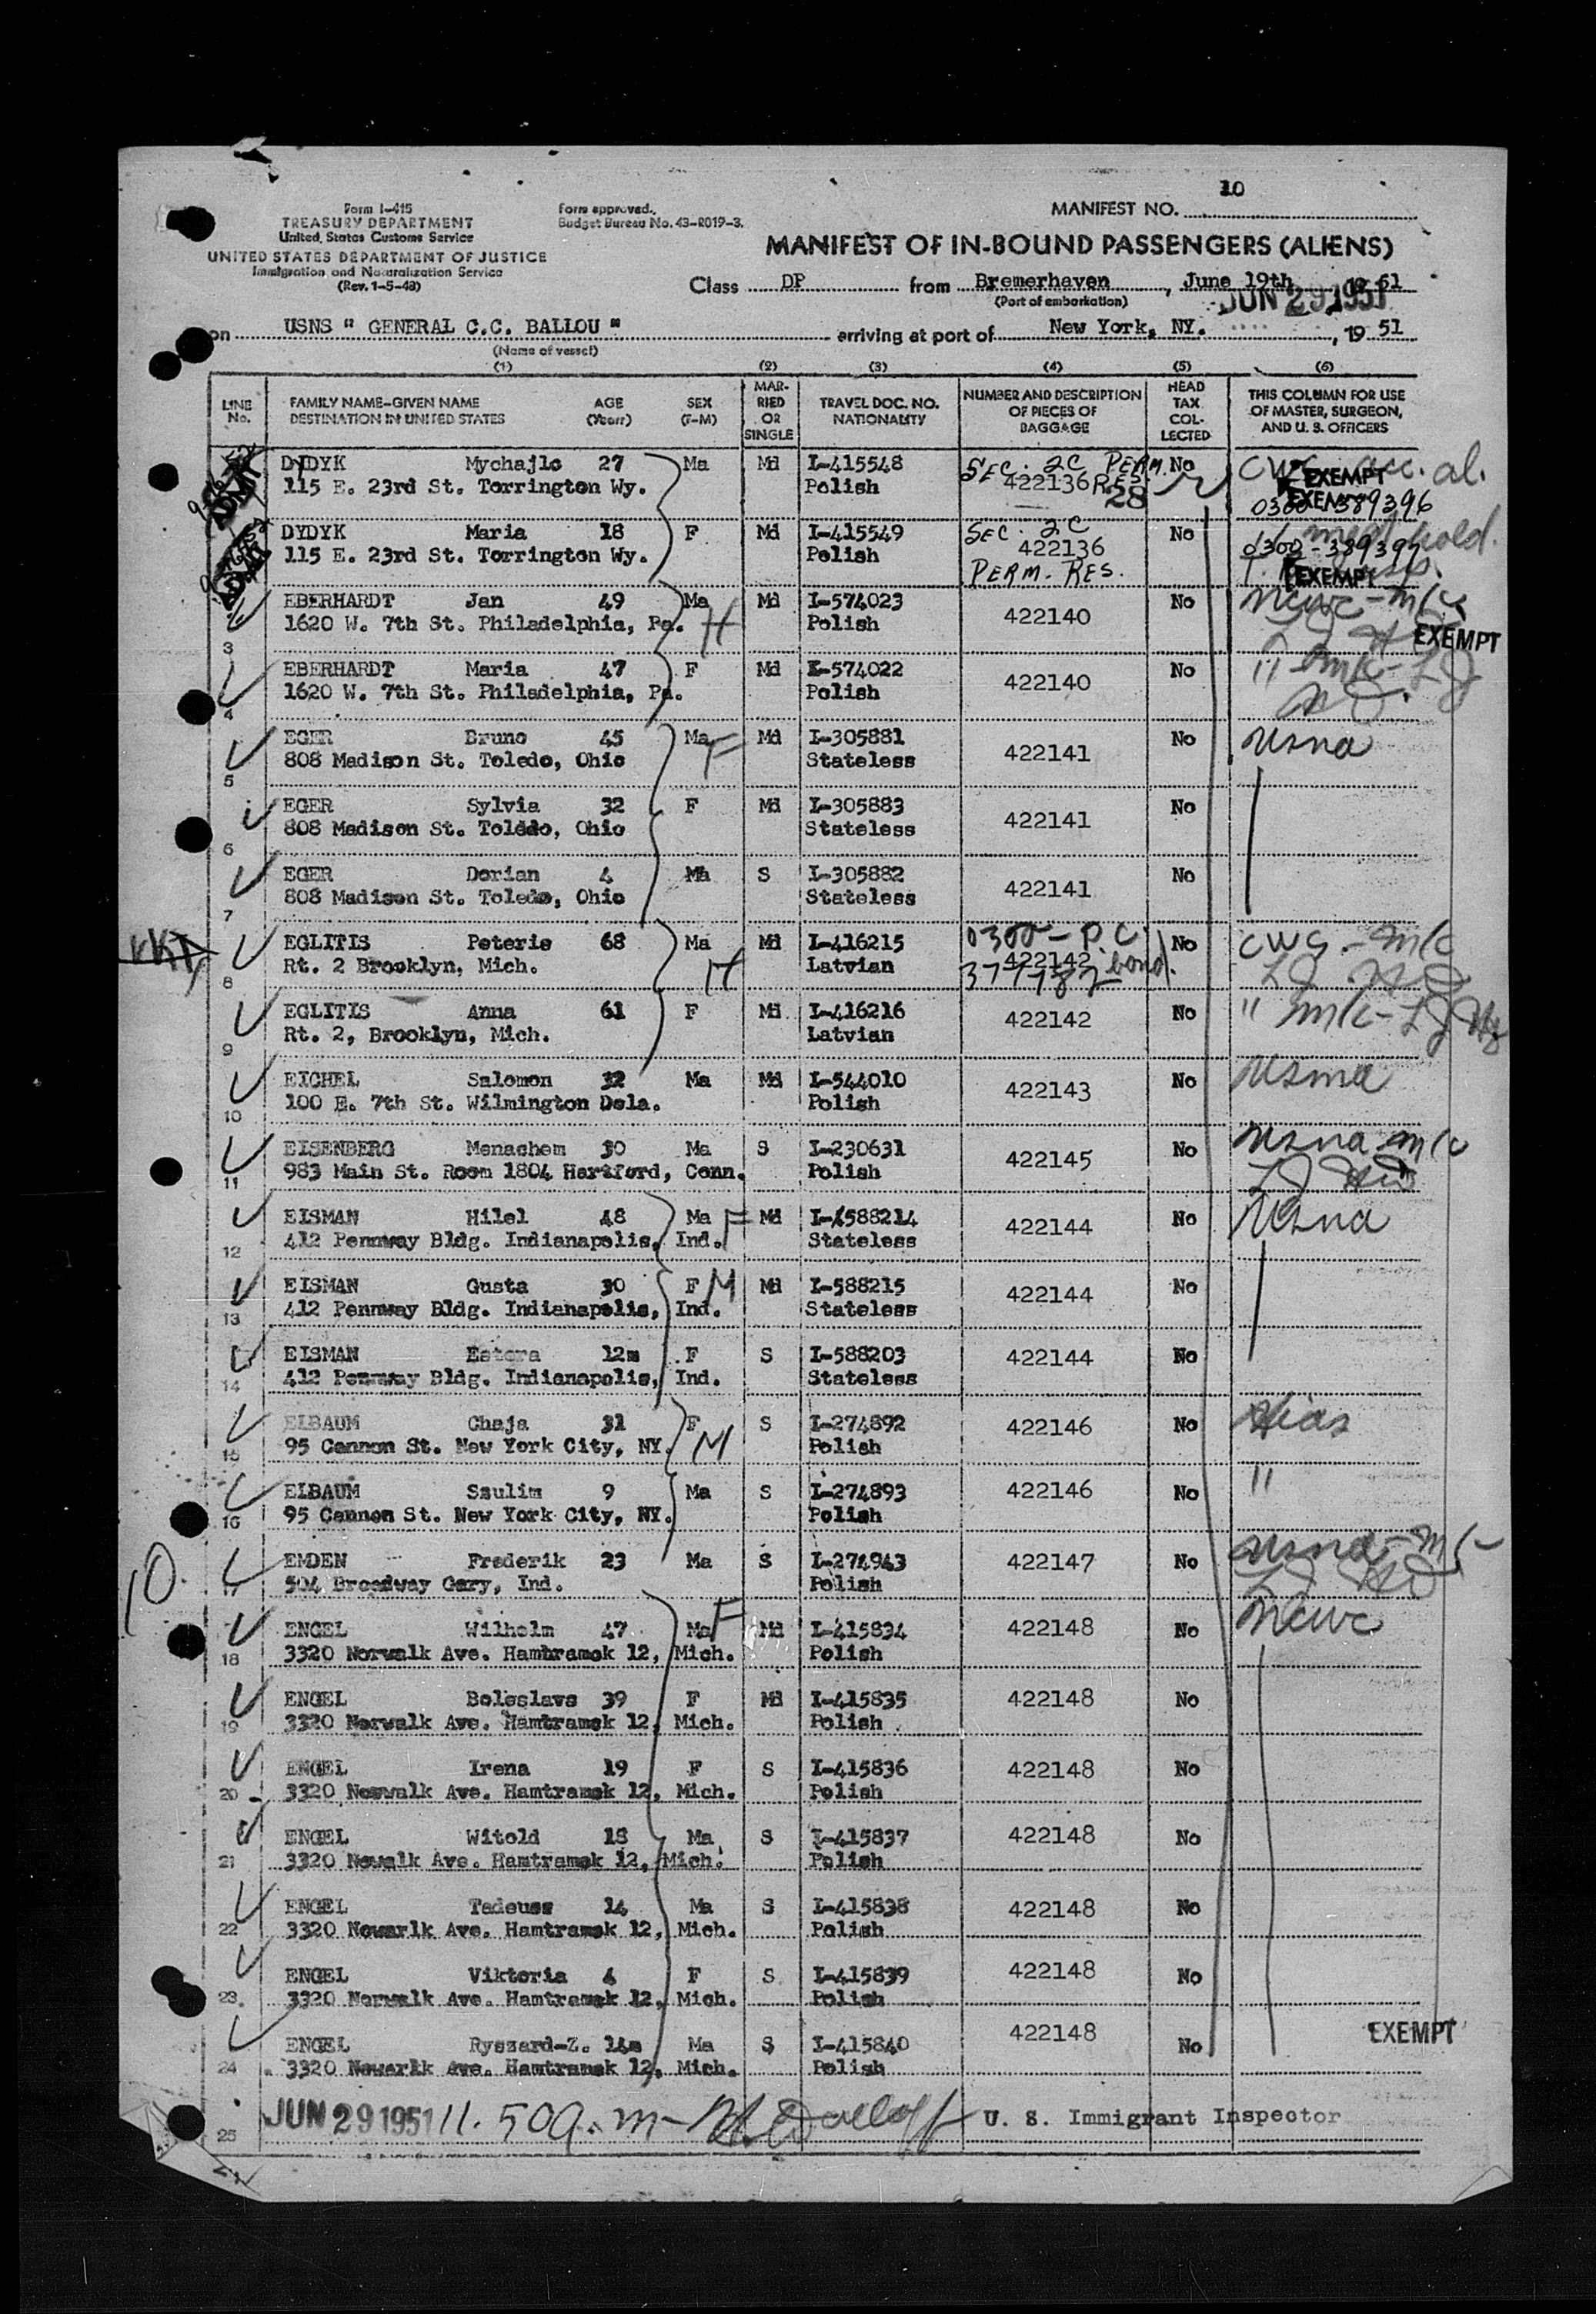 10
MANIFEST NO.
Form I-415
TREASURY DEPARTMENT
United States Customs Service
UNITED STATES DEPARTMENT OF JUSTICE
Immigration and Naturalization Service
(Rev. 1-5-48)
Form approved.
Budget Bureau No. 43-R019-3.
MANIFEST OF IN-BOUND PASSENGERS (ALIENS)
Class DP from Bremerhaven, June 19th 51
(Port of embarkation)
JUN 29 1951
on USNS " GENERAL C.C. BALLOU " arriving at port of New York, NY. , 19 51
(Name of vessel)
(1) (2) (3) (4) (5) (6)
LINE No. FAMILY NAME-GIVEN NAME DESTINATION IN UNITED STATES AGE (Years) SEX (F-M) MARRIED OR SINGLE TRAVEL DOC. NO. NATIONALITY NUMBER AND DESCRIPTION OF PIECES OF BAGGAGE HEAD TAX COLLECTED THIS COLUMN FOR USE OF MASTER, SURGEON, AND U. S. OFFICERS
DYDYK Mychajlo 27 Ma Md I-415548 SEC. 2C PERM. RES. 422136 28 No EXEMPT
115 E. 23rd St. Torrington Wy. Polish 0300-389396
DYDYK Maria 18 F Md I-415549 SEC. 2C 422136 No hold.
115 E. 23rd St. Torrington Wy. Polish PERM. RES. 0300-389397 EXEMPT
3 EBERHARDT Jan 49 Ma H Md I-574023 422140 No ncwc-m/c
1620 W. 7th St. Philadelphia, Pa. Polish EXEMPT
4 EBERHARDT Maria 47 F Md I-574022 422140 No " m/c
1620 W. 7th St. Philadelphia, Pa. Polish
5 EGER Bruno 45 Ma F Md I-305881 422141 No usna
808 Madison St. Toledo, Ohio Stateless
6 EGER Sylvia 32 F Md I-305883 422141 No
808 Madison St. Toledo, Ohio Stateless
7 EGER Dorian 4 Ma S I-305882 422141 No
808 Madison St. Toledo, Ohio Stateless
8 EGLITIS Peteris 68 Ma H Md I-416215 0300-P.C. 422142 bond. No cws-m/c
Rt. 2 Brooklyn, Mich. Latvian
9 EGLITIS Anna 61 F Md I-416216 422142 No " m/c
Rt. 2, Brooklyn, Mich. Latvian
10 EICHEL Salomon 32 Ma Md I-544010 422143 No usna
100 E. 7th St. Wilmington Dela. Polish
11 EISENBERG Menachem 30 Ma S I-230631 422145 No usna-m/c
983 Main St. Room 1804 Hartford, Conn. Polish
12 EISMAN Hilel 48 Ma F Md I-588214 422144 No usna
412 Pennway Bldg. Indianapolis, Ind. Stateless
13 EISMAN Gusta 30 F M Md I-588215 422144 No
412 Pennway Bldg. Indianapolis, Ind. Stateless
14 EISMAN Estera 12m F S I-588203 422144 No
412 Pennway Bldg. Indianapolis, Ind. Stateless
15 ELBAUM Chaja 31 F M S I-274892 422146 No Hias
95 Cannon St. New York City, NY. Polish
16 ELBAUM Szulim 9 Ma S I-274893 422146 No "
95 Cannon St. New York City, NY. Polish
10.
17 EMDEN Frederik 23 Ma S I-274943 422147 No usna-m/c
504 Broadway Gary, Ind. Polish
18 ENGEL Wilhelm 47 Ma F Md I-415834 422148 No ncwc
3320 Norwalk Ave. Hambramck 12, Mich. Polish
19 ENGEL Boleslava 39 F Md I-415835 422148 No
3320 Norwalk Ave. Hamtramck 12, Mich. Polish
20 ENGEL Irena 19 F S I-415836 422148 No
3320 Norwalk Ave. Hamtramck 12, Mich. Polish
21 ENGEL Witold 18 Ma S I-415837 422148 No
3320 Nowalk Ave. Hamtramck 12, Mich. Polish
22 ENGEL Tadeusz 14 Ma S I-415838 422148 No
3320 Nowarlk Ave. Hamtramck 12, Mich. Polish
23 ENGEL Viktoria 4 F S I-415839 422148 No
3320 Norwalk Ave. Hamtramck 12, Mich. Polish
24 ENGEL Ryszard-Z. 14m Ma S I-415840 422148 No EXEMPT
3320 Nowarlk Ave. Hamtramck 12, Mich. Polish
25 JUN 29 1951 11.50 a.m- U. S. Immigrant Inspector